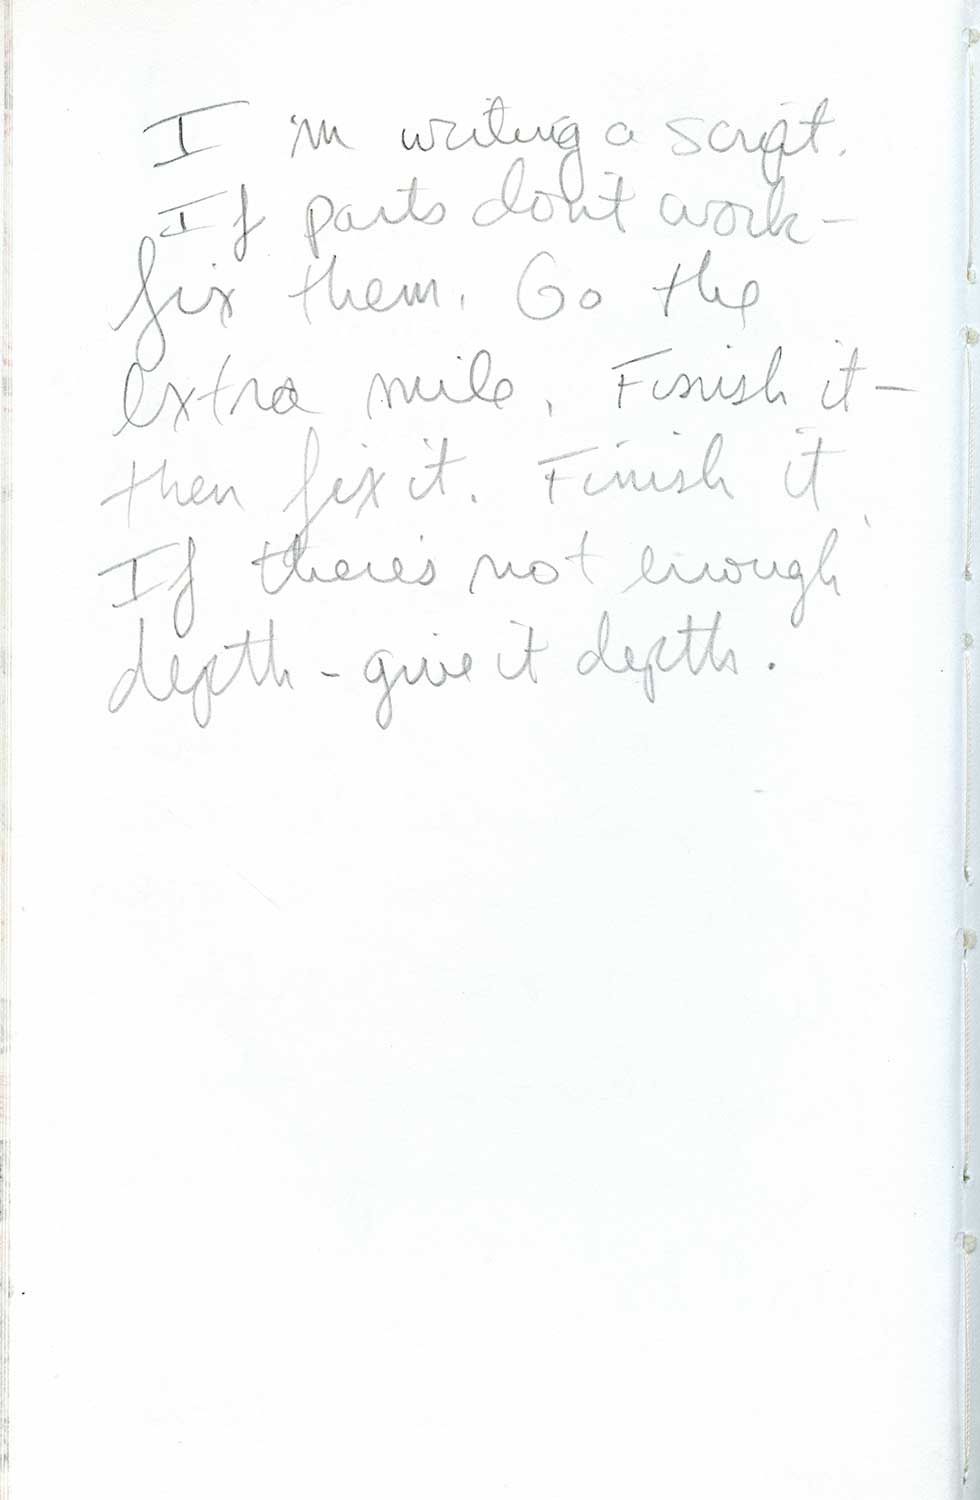 I'm writing a script.
If parts don't work -
fix them. Go the
extra mile. Finish it -
then fix it. Finish it.
If there's not enough
depth - give it depth.